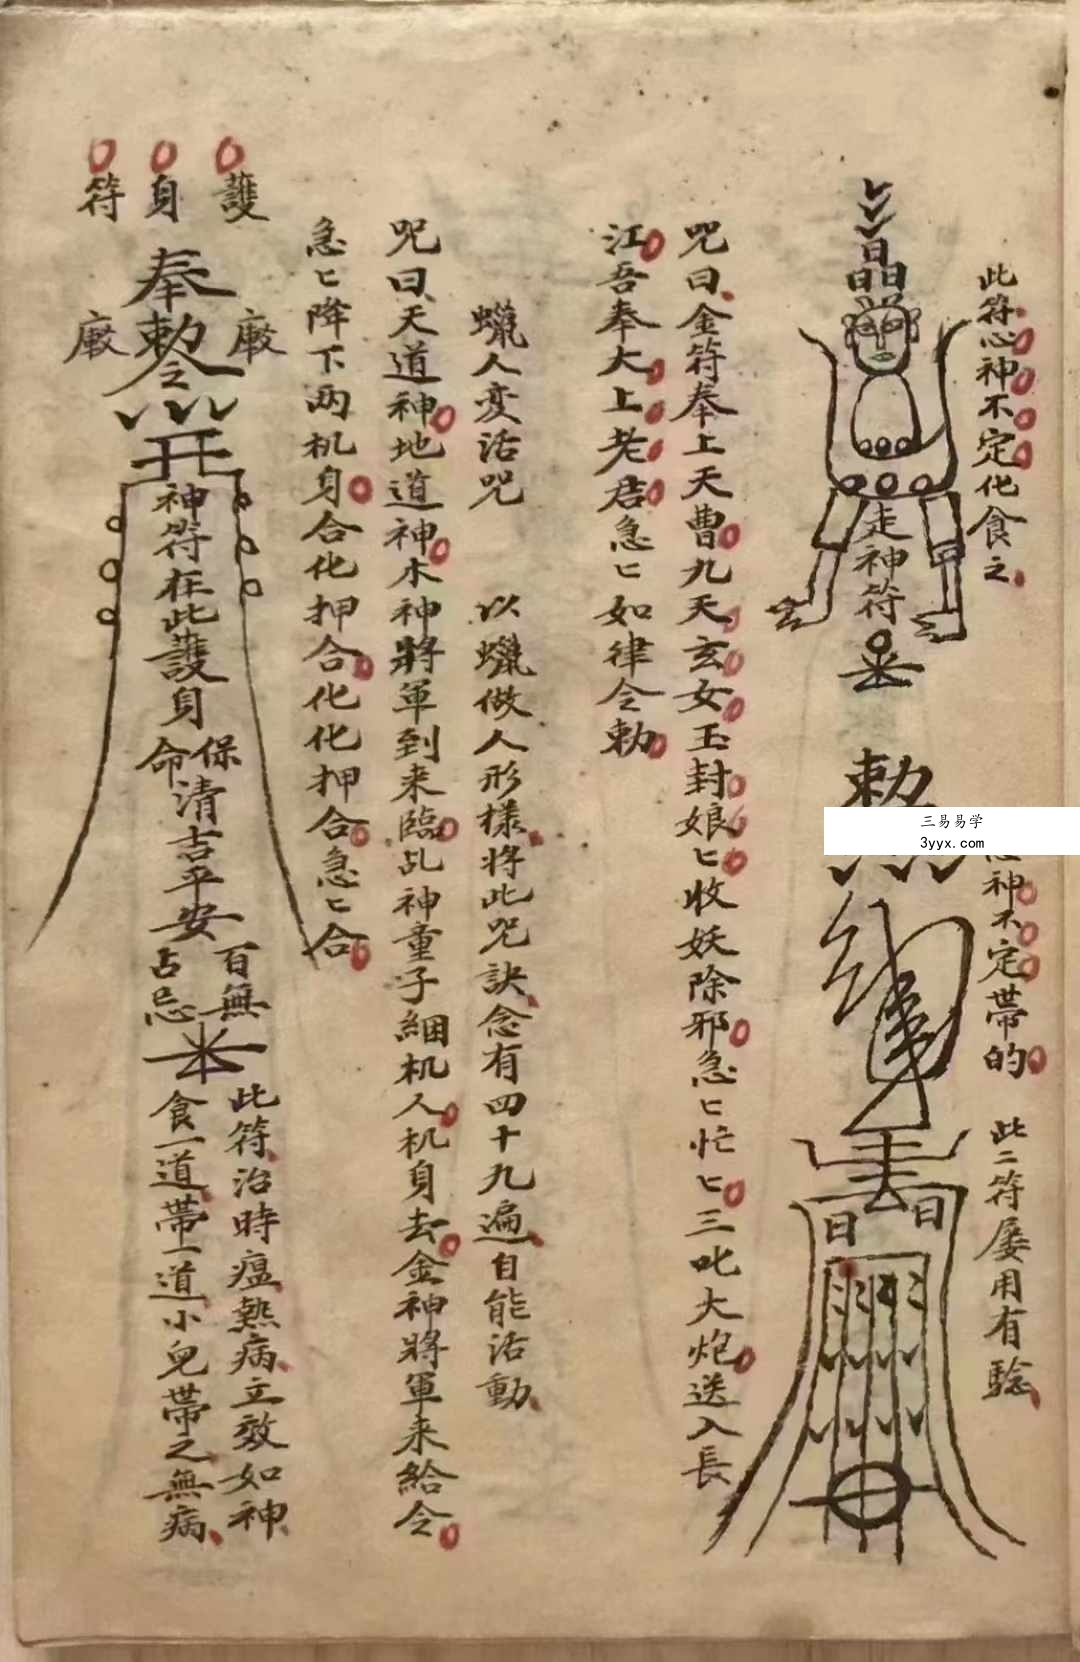 此符心神不定化食之
晶
走神符
勅
三易易学
3yyx.com
神不定帶的
此二符屡用有驗
日 日
咒曰金符奉上天曹九天玄女玉封娘匕收妖除邪急匕忙匕三叱大炮送入長
江吾奉大上老君急匕如律令勅
蠟人变活咒 以蠟做人形樣将此咒訣念有四十九遍自能活動
咒曰天道神地道神木神將軍到来臨乩神童子綑机人机身去金神將軍来給令
急匕降下两机身合化押合化化押合急匕合
護身符
奉勅令
神符在此護身
保命
清吉平安
百無占忌
此符治時瘟熱病立效如神
食一道帶一道小兒帶之無病